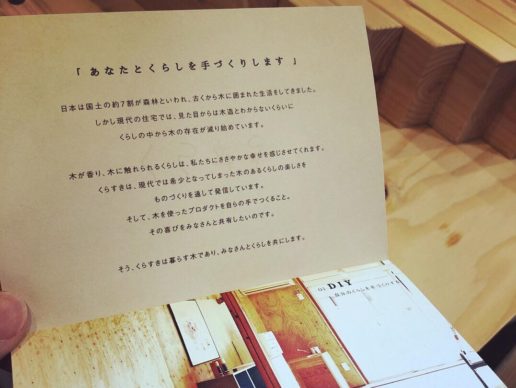 「 あなたとくらしを手づくりします 」
日本は国土の約7割が森林といわれ、古くから木に囲まれた生活をしてきました。
しかし現代の住宅では、見た目からは木造とわからないくらいに
くらしの中から木の存在が減り始めています。
木が香り、木に触れられるくらしは、私たちにささやかな幸せを感じさせてくれます。
くらすきは、現代では希少となってしまった木のあるくらしの楽しさを
ものづくりを通して発信しています。
そして、木を使ったプロダクトを自らの手でつくること。
その喜びをみなさんと共有したいのです。
そう、くらすきは暮らす木であり、みなさんとくらしを共にします。
01 DIY